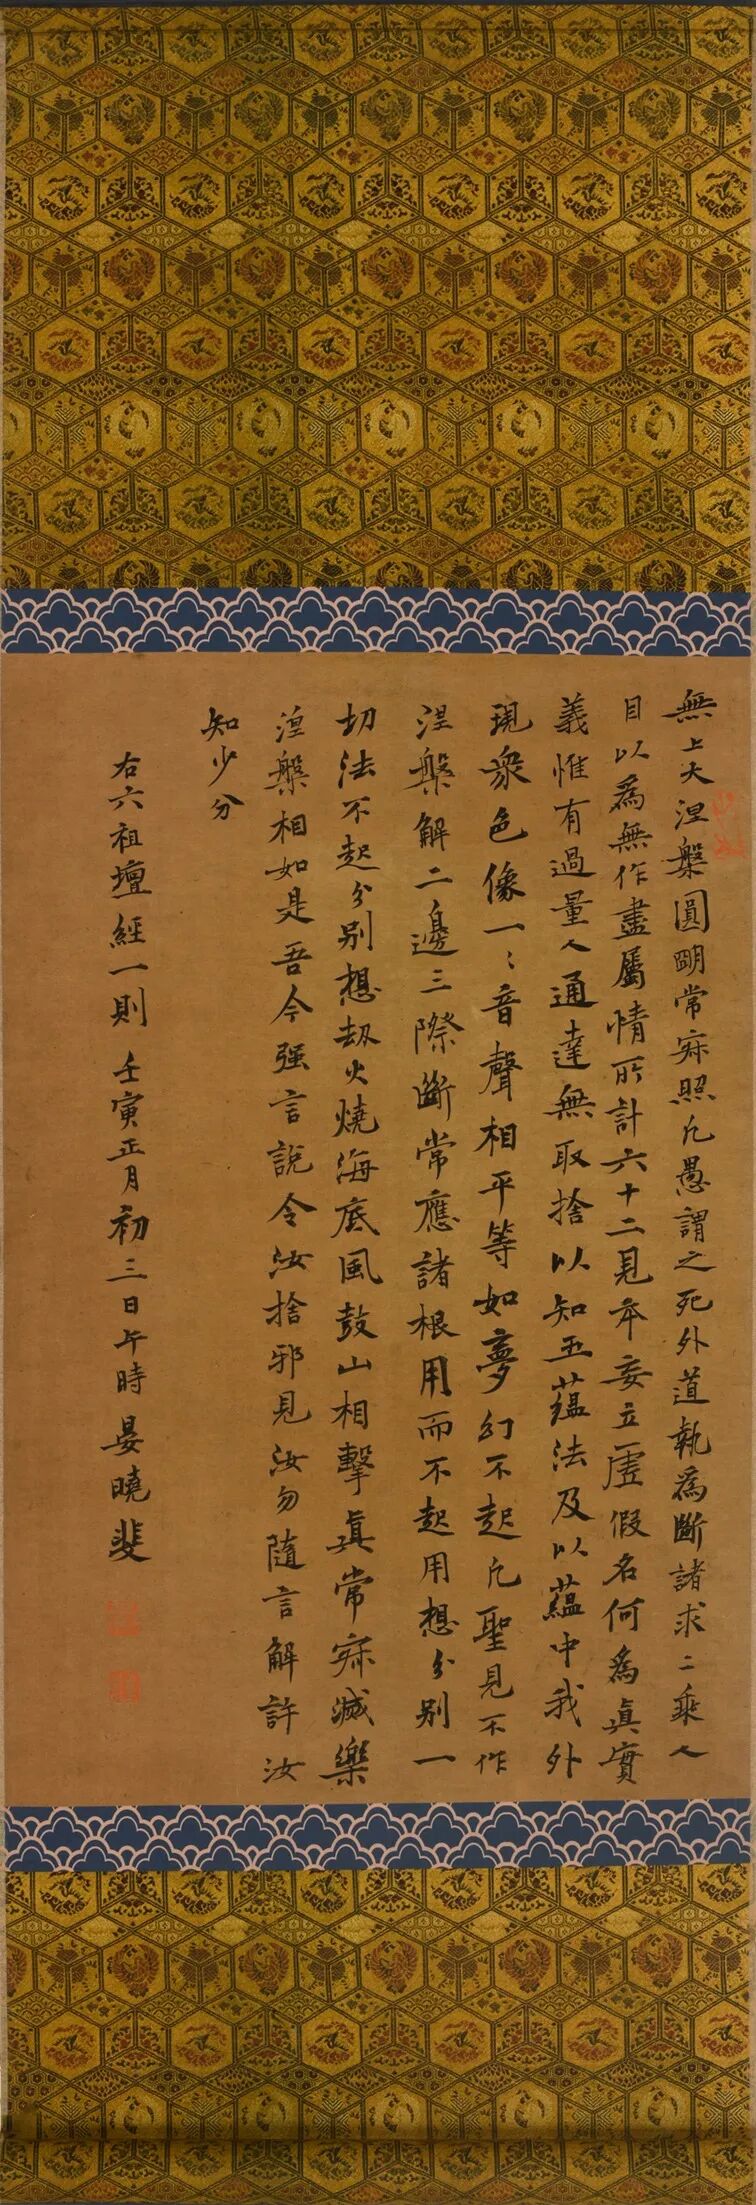 無上大涅槃圓朙常寂照凡愚謂之死外道執爲斷諸求二乘人
目以爲無作盡屬情所計六十二見夲妄立虛假名何爲真實
義惟有過量人通達無取捨以知五蘊法及以蘊中我外
現衆色像一〻音聲相平等如夢幻不起凡聖見不作
涅槃解二邊三際斷常應諸根用而不起用想分別一
切法不起分別想劫火燒海底風鼓山相擊真常寂滅樂
涅槃相如是吾今强言說令汝捨邪見汝勿隨言解許汝
知少分
右六祖壇經一則 壬寅正月初三日午時 晏曉斐